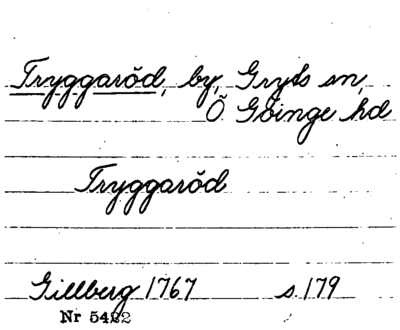 Tryggaröd, by, Gryts sn,
Ö. Göinge hd
Tryggaröd
Gillberg 1767 s. 179
Nr 5422